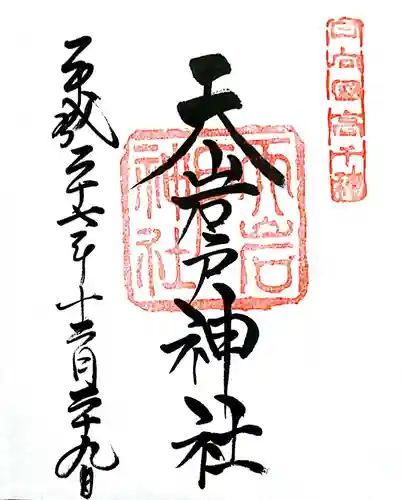 日向国高千穂
天岩戸神社
天岩戸神社
平成二十七年十二月二十九日